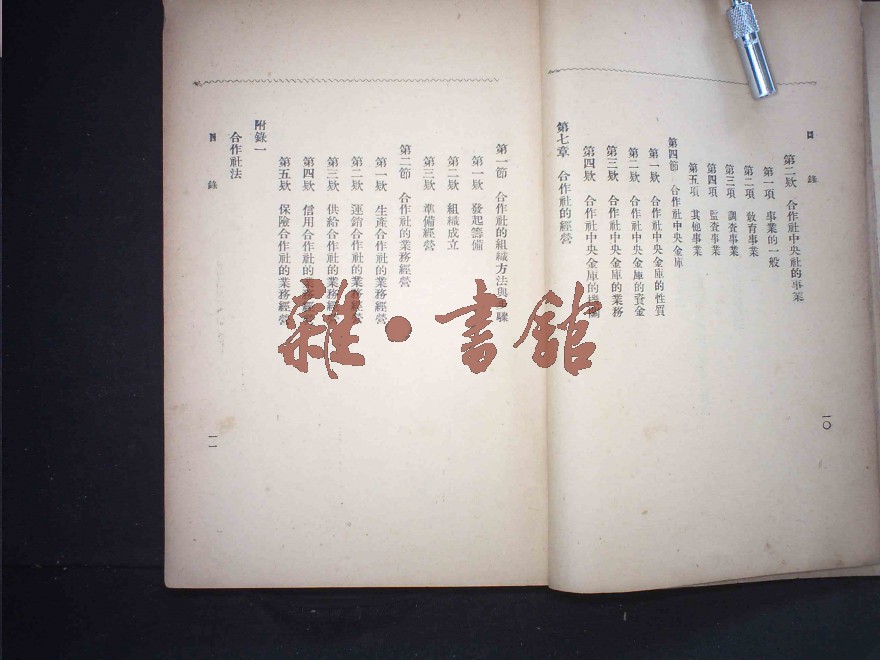 目錄
第二欵 合作社中央社的事業
第一項 事業的一般
第二項 敎育事業
第三項 調査事業
第四項 監査事業
第五項 其他事業
第四節 合作社中央金庫
第一欵 合作社中央金庫的性質
第二欵 合作社中央金庫的資金
第三欵 合作社中央金庫的業務
第四欵 合作社中央金庫的機關
第七章 合作社的經營
一〇
第一節 合作社的組織方法與步驟
第一欵 發起籌備
第二欵 組織成立
第三欵 準備經營
第二節 合作社的業務經營
第一欵 生產合作社的業務經營
第二欵 運銷合作社的業務經營
第三欵 供給合作社的業務經營
第四欵 信用合作社的業務經營
第五欵 保險合作社的業務經營
附錄一
合作社法
目錄
一一
雜·書館